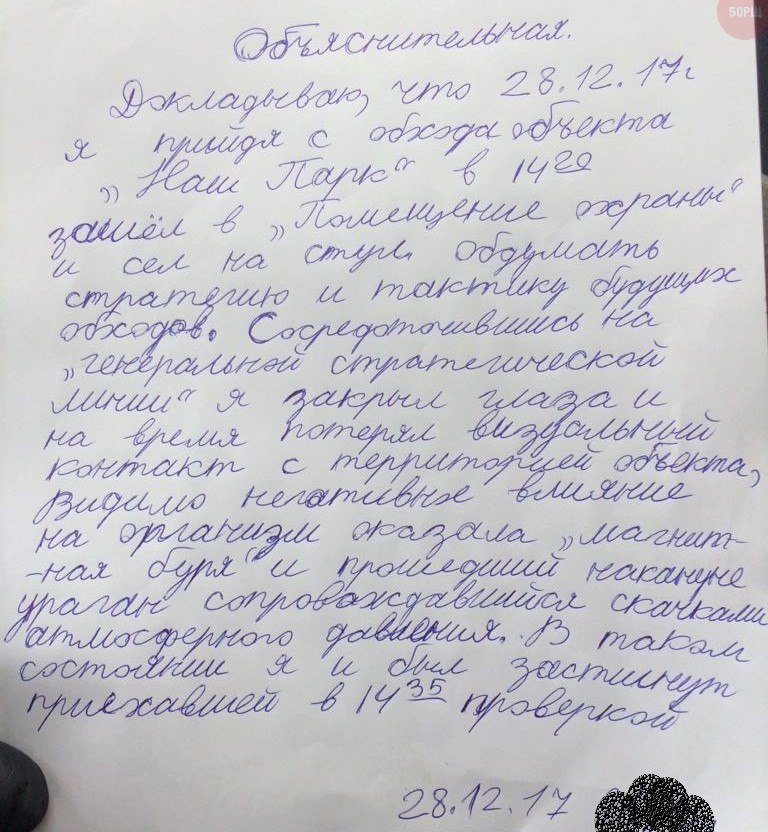 БОРЩ
Объяснительная.
Докладываю, что 28.12.17г
я прийдя с обхода объекта
„Наш Парк“ в 14 20
зашёл в „Помещение охраны“
и сел на стул. обдумать
стратегию и тактику будущих
обходов. Сосредоточившись на
„генеральной стратегической
линии“ я закрыл глаза и
на время потерял визуальный
контакт с территорией объекта,
Видимо негативных влияние
на организм оказала „магнит-
-ная буря“ и прошедший накануне
ураган сопровождавшийся скачками
атмосферного давления. В таком
состоянии я и был застигнут
приехавшей в 14 35 проверкой
28.12.17